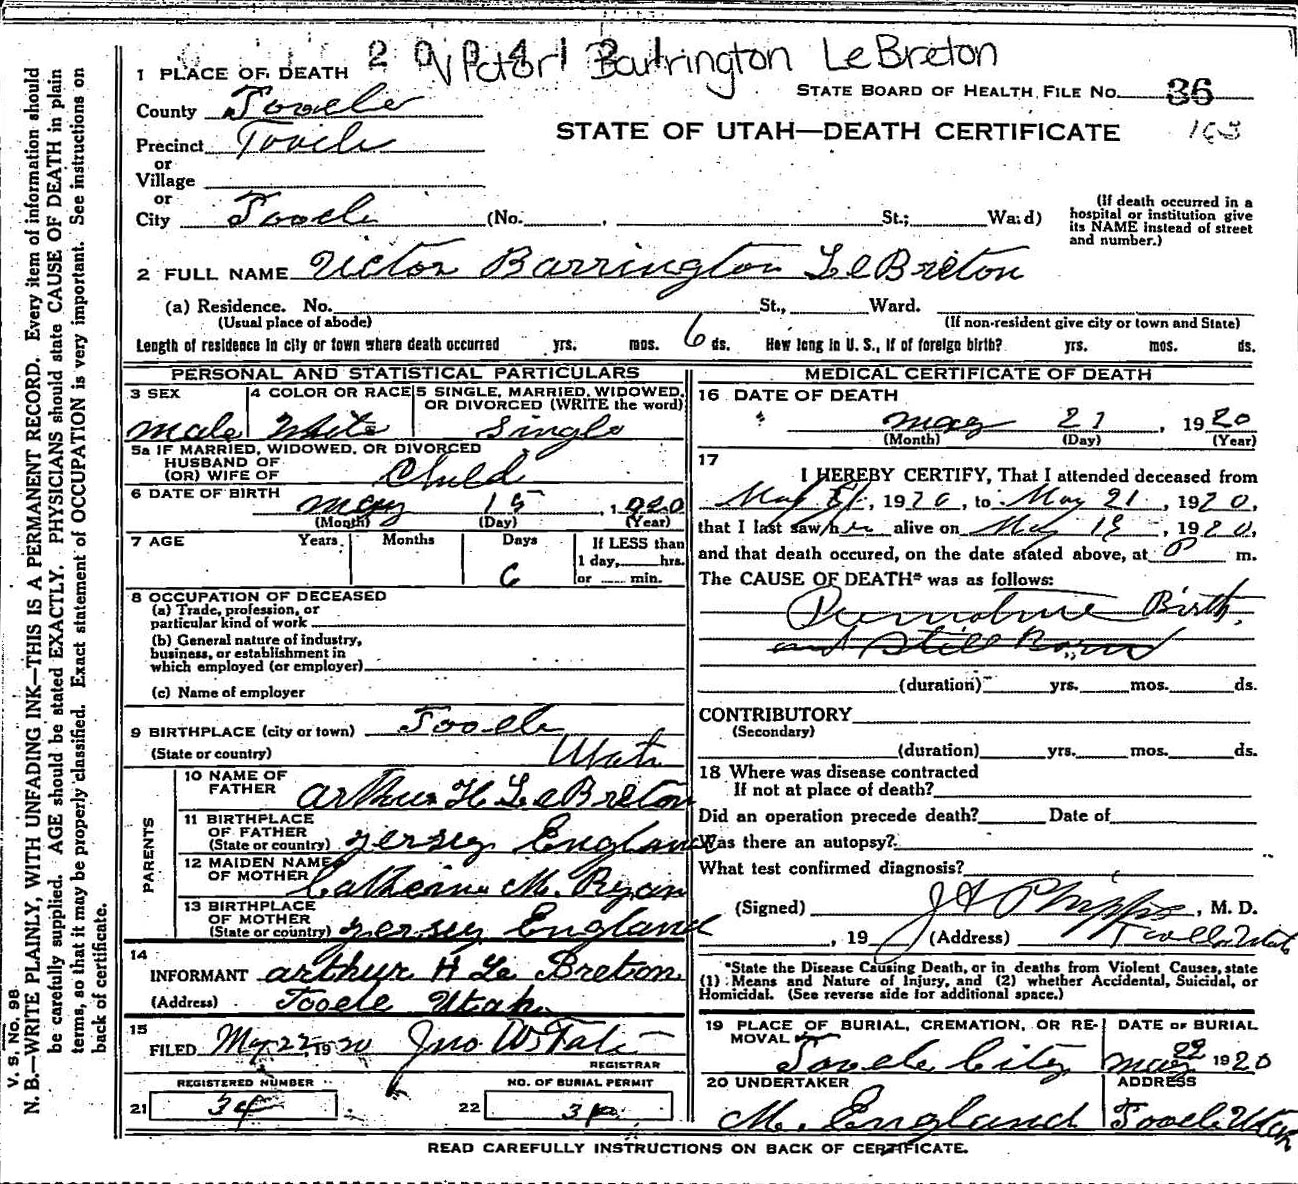 Victor Barrington LeBreton
1 PLACE OF DEATH
County Tooele
STATE BOARD OF HEALTH FILE No. 36
STATE OF UTAH—DEATH CERTIFICATE
Precinct Tooele
or
Village
or
City Tooele (No. , St.; Ward)
(If death occurred in a
hospital or institution give
its NAME instead of street
and number.)
2 FULL NAME Victor Barrington LeBreton
(a) Residence. No. St., Ward.
(Usual place of abode) (If non-resident give city or town and State)
Length of residence in city or town where death occurred yrs. mos. 6 ds. How long in U. S., if of foreign birth? yrs. mos. ds.
PERSONAL AND STATISTICAL PARTICULARS
3 SEX
Male
4 COLOR OR RACE
White
5 SINGLE, MARRIED, WIDOWED,
OR DIVORCED (WRITE the word)
Single
5a IF MARRIED, WIDOWED, OR DIVORCED
HUSBAND OF
(OR) WIFE OF Child
6 DATE OF BIRTH
May 15, 1920
(Month) (Day) (Year)
7 AGE Years Months Days
6
If LESS than
1 day, hrs.
or min.
8 OCCUPATION OF DECEASED
(a) Trade, profession, or
particular kind of work
(b) General nature of industry,
business, or establishment in
which employed (or employer)
(c) Name of employer
9 BIRTHPLACE (city or town) Tooele
(State or country) Utah
PARENTS
10 NAME OF
FATHER Arthur H LeBreton
11 BIRTHPLACE
OF FATHER
(State or country) Jersey England
12 MAIDEN NAME
OF MOTHER Catherine M. Ryan
13 BIRTHPLACE
OF MOTHER
(State or country) Jersey England
14
INFORMANT Arthur H Le Breton
(Address) Tooele Utah
15
FILED May 22, 1920 Jno W Tate
REGISTRAR
REGISTERED NUMBER
21 34
NO. OF BURIAL PERMIT
22 34
MEDICAL CERTIFICATE OF DEATH
16 DATE OF DEATH
May 21, 1920
(Month) (Day) (Year)
17
I HEREBY CERTIFY, That I attended deceased from
May , 1920, to May 21, 1920,
that I last saw h alive on May , 1920,
and that death occured, on the date stated above, at P m.
The CAUSE OF DEATH* was as follows:
Premature Birth.
and Still Born
(duration) yrs. mos. ds.
CONTRIBUTORY
(Secondary)
(duration) yrs. mos. ds.
18 Where was disease contracted
If not at place of death?
Did an operation precede death? Date of
Was there an autopsy?
What test confirmed diagnosis?
(Signed) J A Phipps, M. D.
, 19 (Address) Tooele Utah
*State the Disease Causing Death, or in deaths from Violent Causes, state
(1) Means and Nature of Injury, and (2) whether Accidental, Suicidal, or
Homicidal. (See reverse side for additional space.)
19 PLACE OF BURIAL, CREMATION, OR RE-
MOVAL
Tooele City
DATE OF BURIAL
May 22 1920
20 UNDERTAKER
M. England
ADDRESS
Tooele Utah
READ CAREFULLY INSTRUCTIONS ON BACK OF CERTIFICATE.
V. S. No. 98
N. B.—WRITE PLAINLY, WITH UNFADING INK—THIS IS A PERMANENT RECORD. Every item of information should
be carefully supplied. AGE should be stated EXACTLY. PHYSICIANS should state CAUSE OF DEATH in plain
terms, so that it may be properly classified. Exact statement of OCCUPATION is very important. See instructions on
back of certificate.